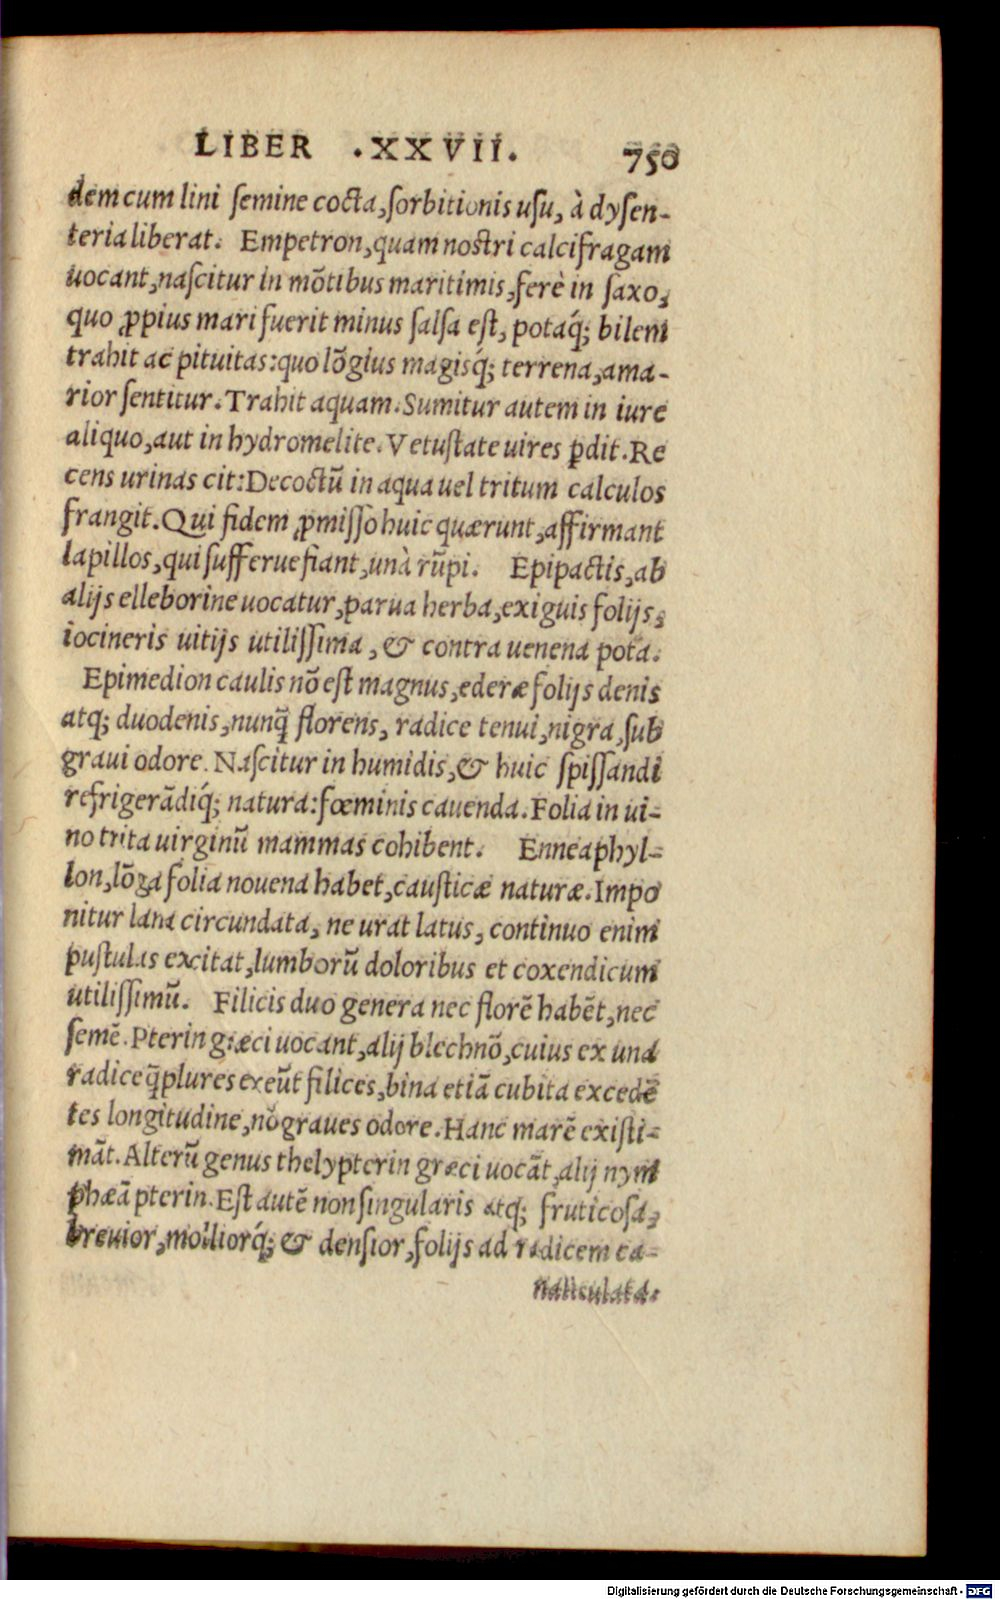 LIBER .XXVII. 750
dem cum lini semine cocta, sorbitionis usu, à dysen-
teria liberat. Empetron, quam nostri calcifragam
uocant, nascitur in mõtibus maritimis, ferè in saxo,
quo ꝓpius mari fuerit minus salsa est, potaq́; bilem
trahit ac pituitas: quo lõgius magisq́; terrena, ama-
rior sentitur. Trahit aquam. Sumitur autem in iure
aliquo, aut in hydromelite. Vetustate uires ꝑdit. Re
cens urinas cit: Decoctũ in aqua uel tritum calculos
frangit. Qui fidem ꝓmisso huic quærunt, affirmant
lapillos, qui sufferuefiant, unà rũpi. Epipactis, ab
alijs elleborine uocatur, parua herba, exiguis folijs,
iocineris uitijs utilissima, & contra uenena pota.
Epimedion caulis nõ est magnus, ederæ folijs denis
atq; duodenis, nunq̃ florens, radice tenui, nigra, sub
graui odore. Nascitur in humidis, & huic spissandi
refrigerãdiq́; natura: fœminis cauenda. Folia in ui-
no trita uirginũ mammas cohibent. Enneaphyl-
lon, lõga folia nouena habet, causticæ naturæ. Impo
nitur lana circundata, ne urat latus, continuo enim
pustulas excitat, lumborũ doloribus et coxendicum
utilissimũ. Filicis duo genera nec florẽ habẽt, nec
semẽ. Pterin græci uocant, alij blechnõ, cuius ex una
radice q̃plures exeũt filices, bina etiã cubita excedẽ
tes longitudine, nõ graues odore. Hanc marẽ existi-
mãt. Alterũ genus thelypterin græci uocãt, alij nym
phæã pterin. Est autẽ non singularis atq; fruticosa,
breuior, molliorq́; & densior, folijs ad radicem ca-
naliculata.